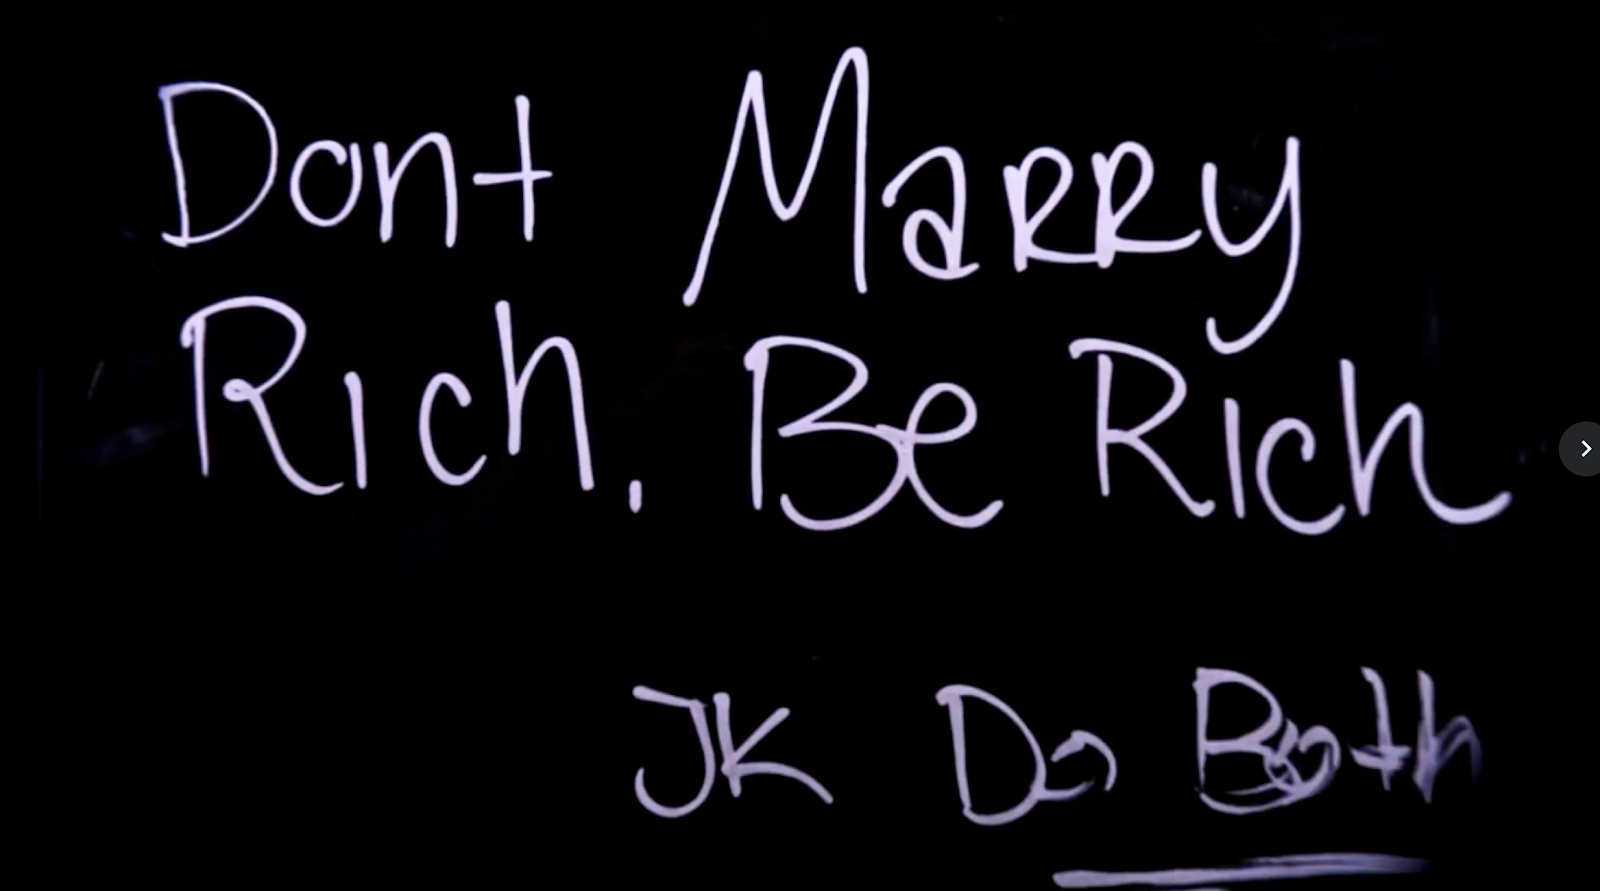 Dont Marry
Rich. Be Rich
JK Do Both